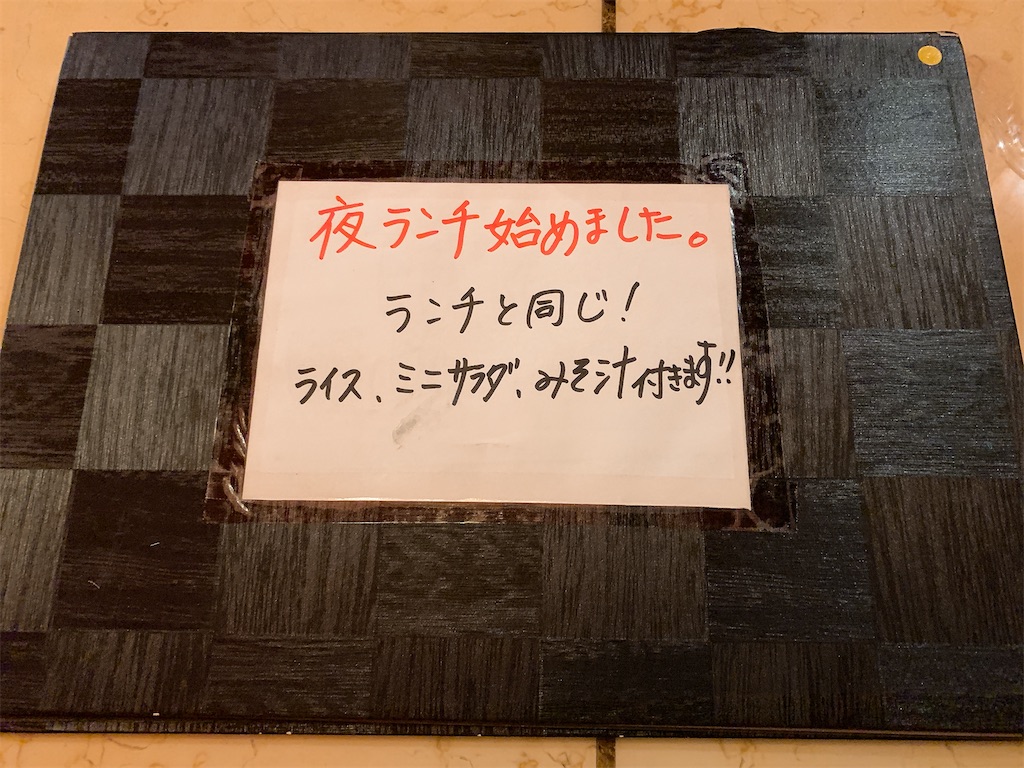 夜ランチ始めました。
ランチと同じ!
ライス、ミニサラダ、みそ汁付きます!!